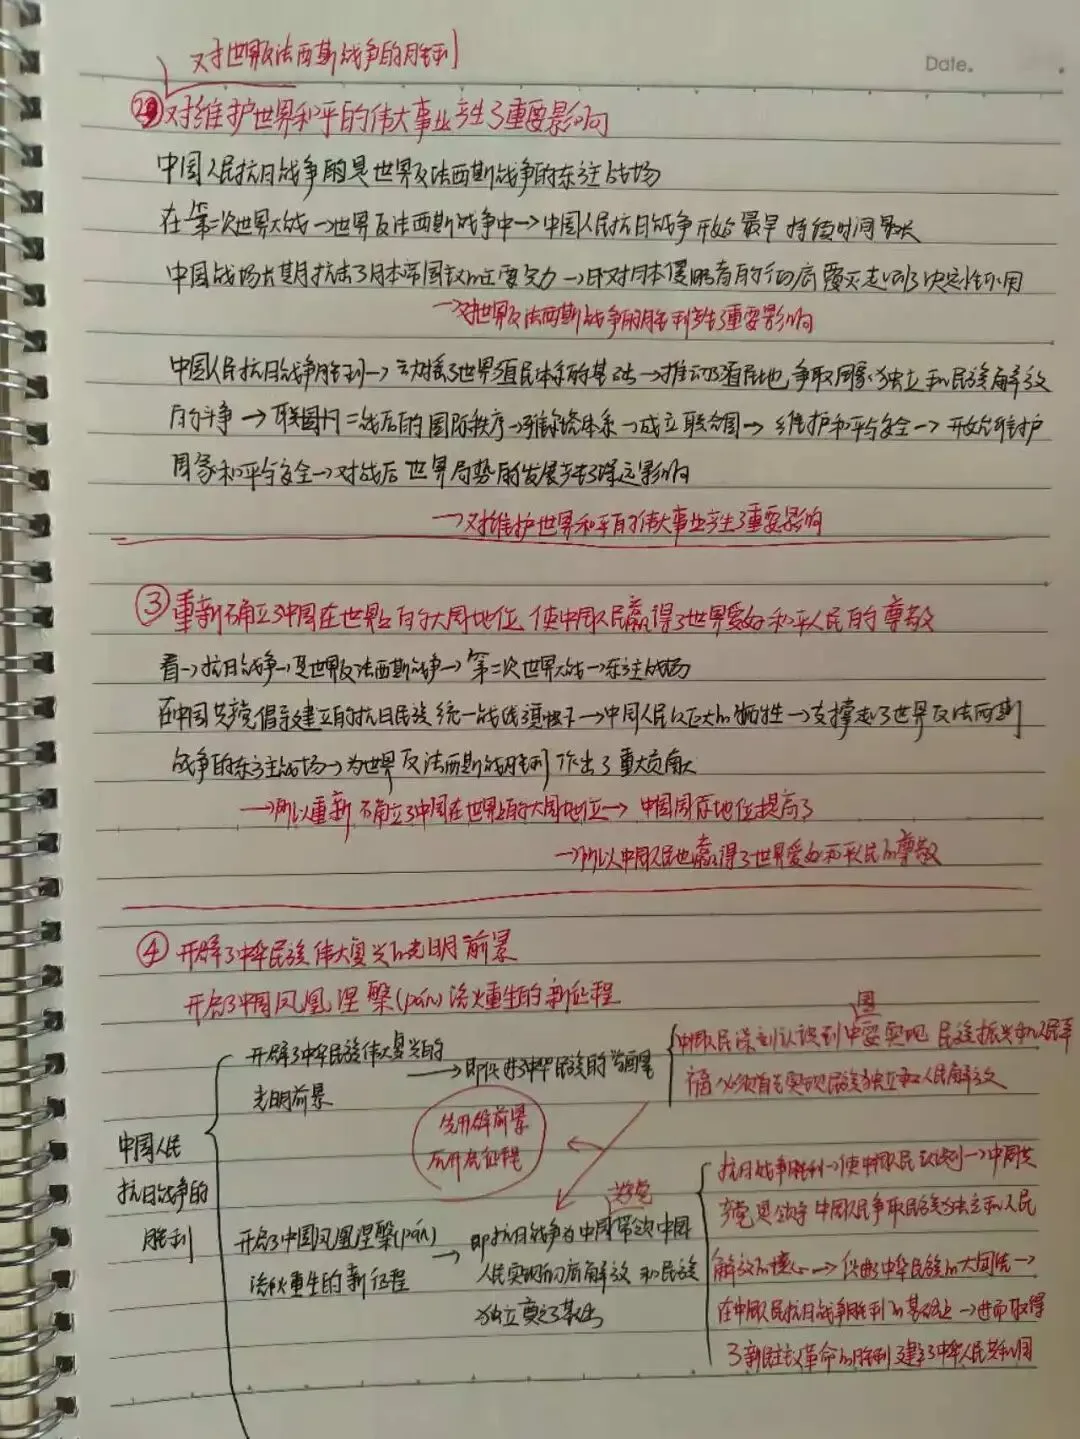 对世界反法西斯战争的胜利
Date.
② 对维护世界和平的伟大事业产生了重要影响
中国人民抗日战争的是世界反法西斯战争的东方主战场
在第二次世界大战→世界反法西斯战争中→中国人民抗日战争开始最早 持续时间最长
中国战场长期抗击了日本帝国主义的主要兵力→即对日本侵略者的彻底覆灭起到了决定性作用
→对世界反法西斯战争的胜利产生了重要影响
中国人民抗日战争胜利→动摇了世界殖民体系的基础→推动了殖民地争取国家独立和民族解放
的斗争→ 二战后的国际秩序→ 体系→成立联合国→维护和平与安全→开始维护
国家和平与安全→对战后世界局势的发展产生了深远影响
→对维护世界和平的伟大事业产生了重要影响
③ 重新确立了中国在世界上的大国地位 使中国人民赢得了世界爱好和平人民的尊敬
看→抗日战争→是世界反法西斯战争→第二次世界大战→东方主战场
在中国共产党倡导建立的抗日民族统一战线旗帜下→中国人民以巨大的牺牲→支撑起了世界反法西斯
战争的东方主战场→为世界反法西斯战胜利作出了重大贡献
→所以重新确立了中国在世界上的大国地位→中国国际地位提高了
→所以中国人民也赢得了世界爱好和平人民的尊敬
④ 开辟了中华民族伟大复兴的光明前景
开启了中国凤凰涅槃(pán)浴火重生的新征程
中国人民
抗日战争的
胜利
开辟了中华民族伟大复兴的
光明前景
→即促进中华民族的觉醒
国
中国人民深刻认识到中要实现民族振兴和人民幸
福必须首先实现民族独立和人民解放
先开辟前景
后开启征程
开启了中国凤凰涅槃(pán)
浴火重生的新征程
共党
→即抗日战争为中国带领中国
人民实现彻底解放和民族
独立奠定了基础
抗日战争胜利→使中国人民认识到→中国共
产党是领导中国人民争取民族独立和人民
解放的核心→促进中华民族的大团结→
在中国人民抗日战争胜利的基础上→进而取得
了新民主主义革命的胜利 建立了中华人民共和国